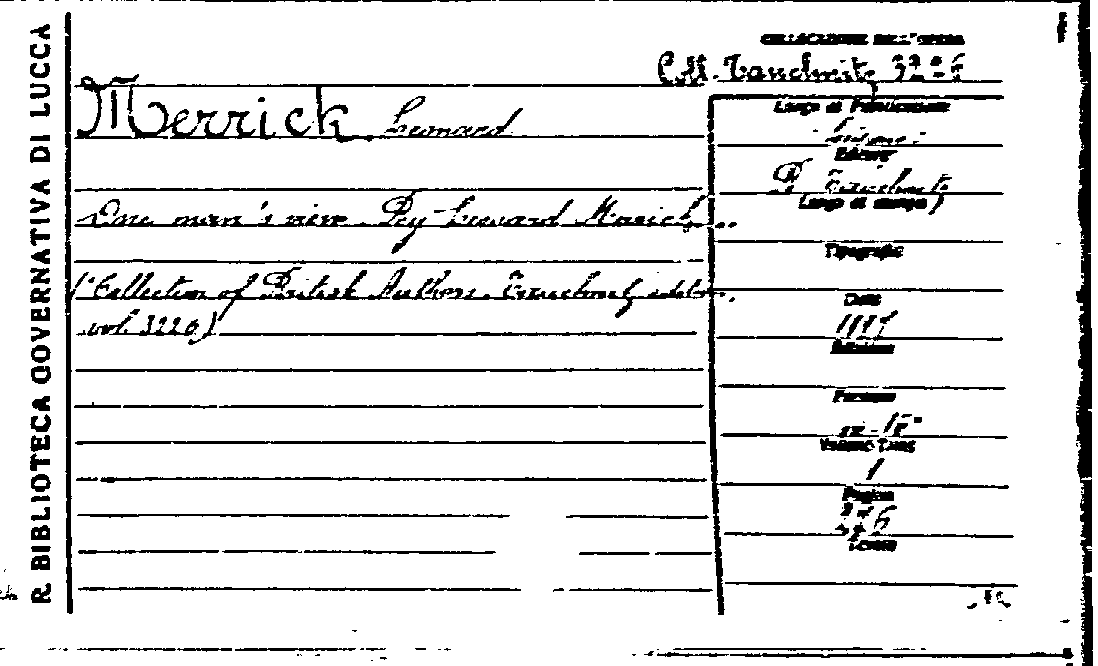 R. BIBLIOTECA GOVERNATIVA DI LUCCA
COLLOCAZIONE DELL'OPERA
Coll. Tauchnitz 3226
Merrick Leonard
One man's view. By Leonard Merrick
(Collection of British Authors. Tauchnitz edition.
vol. 3226)
Luogo di Pubblicazione
Editore
B. Tauchnitz
Luogo di stampa
Tipografia
Data
Edizione
Formato
in-16°
Volume
1
Pagine